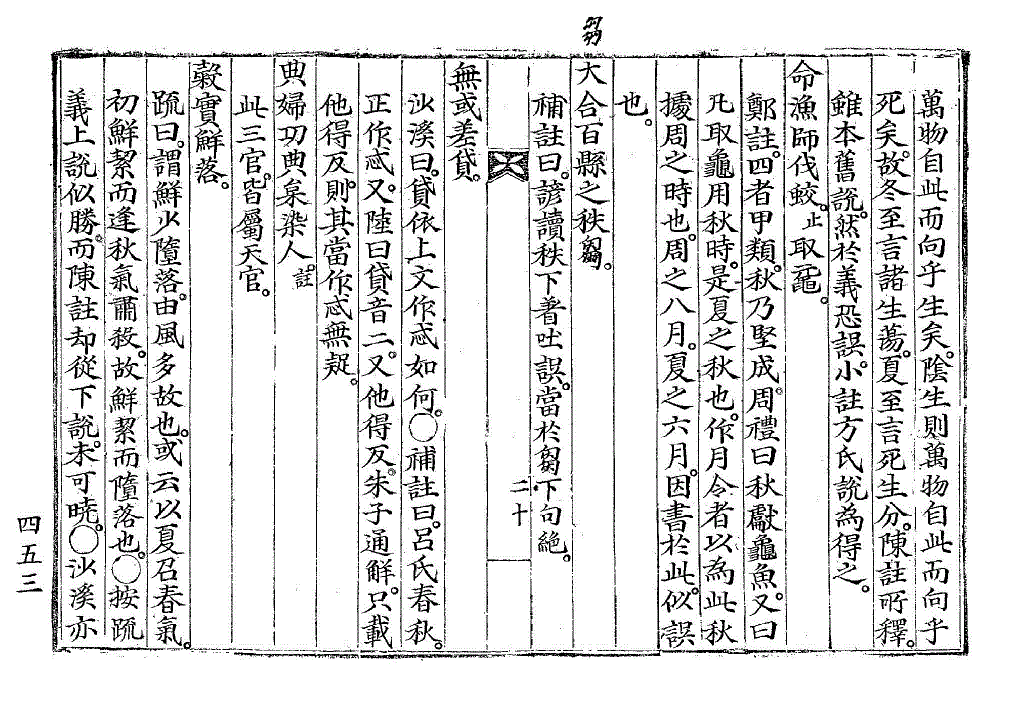 萬物自此而向乎生矣。陰生則萬物自此而向乎
死矣。故冬至言諸生蕩。夏至言死生分。陳註所釋。
雖本舊說。然於義恐誤。小註方氏說為得之。
命漁師伐蛟。止取黿。
鄭註。四者甲類。秋乃堅成。周禮曰秋獻龜魚。又曰
凡取龜用秋時。是夏之秋也。作月令者以為此秋
據周之時也。周之八月。夏之六月。因書於此。似誤
也。
大合百縣之秩芻。
補註曰。諺讀秩下著吐誤。當於芻下句絶。
二十
無或差貸。
沙溪曰。貸依上文作忒如何。○補註曰。呂氏春秋。
正作忒。又陸曰貸音二。又他得反。朱子通解。只載
他得反。則其當作忒無疑。
典婦功典枲染人。註
此三官。皆屬天官。
穀實鮮落。
疏曰。謂鮮少墮落。由風多故也。或云以夏召春氣。
初鮮絜而逢秋氣肅殺。故鮮絜而墮落也。○按疏
義上說似勝。而陳註却從下說。未可曉。○沙溪亦
四五三
芻